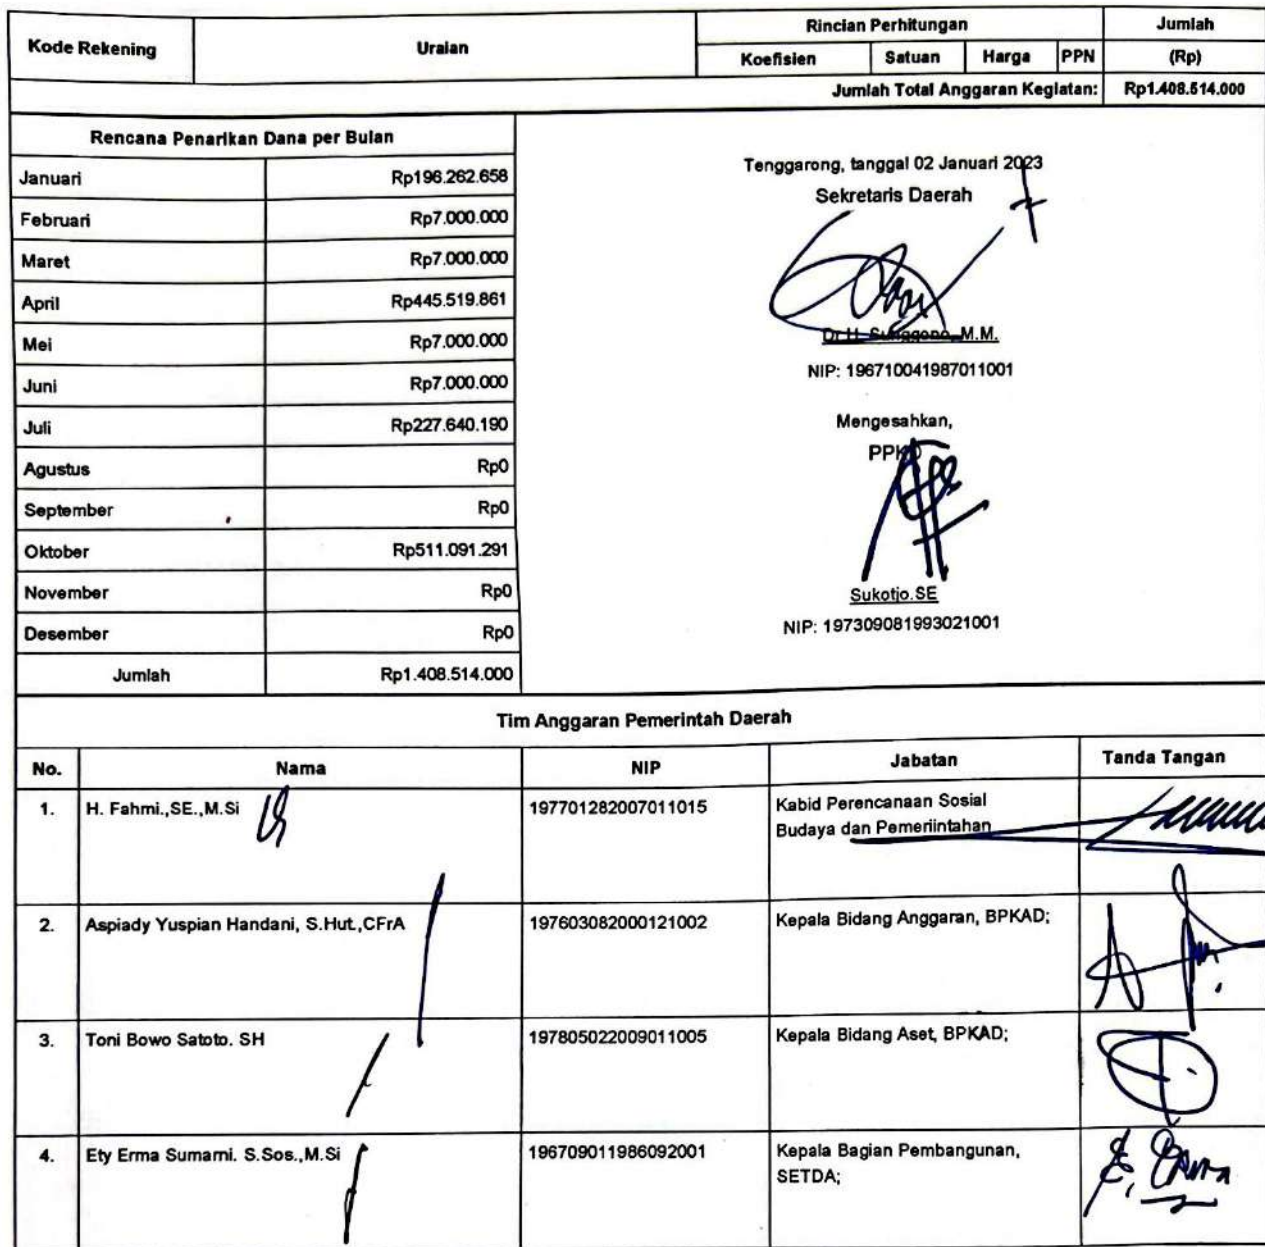 Kode Rekening
Uraian
Rincian Perhitungan
Jumlah
Koefisien
Satuan
Harga
PPN
(Rp)
Jumlah Total Anggaran Kegiatan:
Rp1.408.514.000
Rencana Penarikan Dana per Bulan
Januari
Rp196.262.658
Februari
Rp7.000.000
Maret
Rp7.000.000
April
Rp445.519.861
Mei
Rp7.000.000
Juni
Rp7.000.000
Juli
Rp227.640.190
Agustus
Rp0
September
Rp0
Oktober
Rp511.091.291
November
Rp0
Desember
Rp0
Jumlah
Rp1.408.514.000
Tenggarong, tanggal 02 Januari 2023
Sekretaris Daerah
Dr.H. Sunggono, M.M.
NIP: 196710041987011001
Mengesahkan,
PPKD
Sukotjo.SE
NIP: 197309081993021001
Tim Anggaran Pemerintah Daerah
No.
Nama
NIP
Jabatan
Tanda Tangan
1.
H. Fahmi.,SE.,M.Si
197701282007011015
Kabid Perencanaan Sosial
Budaya dan Pemeriintahan
2.
Aspiady Yuspian Handani, S.Hut.,CFrA
197603082000121002
Kepala Bidang Anggaran, BPKAD;
3.
Toni Bowo Satoto. SH
197805022009011005
Kepala Bidang Aset, BPKAD;
4.
Ety Erma Sumarni. S.Sos.,M.Si
196709011986092001
Kepala Bagian Pembangunan,
SETDA;